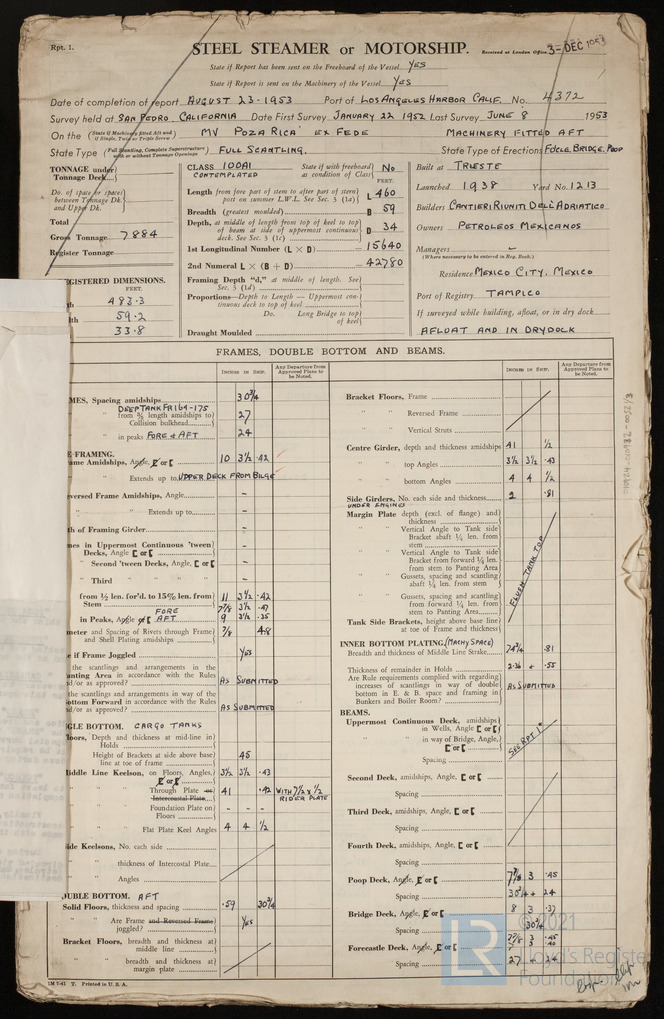 Rpt. 1.
STEEL STEAMER or MOTORSHIP.
Received at London Office 3 - DEC 1953
State if Report has been sent on the Freeboard of the Vessel YES
State if Report is sent on the Machinery of the Vessel YES
Date of completion of report AUGUST 23-1953 Port of LOS ANGELES HARBOR CALIF. No. 4372
Survey held at SAN PEDRO, CALIFORNIA Date First Survey JANUARY 22 1952 Last Survey JUNE 8 1953
On the (State if Machinery fitted Aft and if Single, Twin or Triple Screw) MV POZA RICA' EX FEDE MACHINERY FITTED AFT
State Type (Full Scantling, Complete Superstructure with or without Tonnage Openings) FULL SCANTLING. State Type of Erections FOCLE. BRIDGE. POOP
TONNAGE under Tonnage Deck
Do. of space or spaces between Tonnage Dk. and Upper Dk.
Total
Gross Tonnage 7884
Register Tonnage
REGISTERED DIMENSIONS.
FEET.
483.3
59.2
33.8
CLASS 100A1 CONTEMPLATED State if with freeboard as condition of Class No
FEET.
Length from fore part of stem to after part of stern post on summer L.W.L. See Sec. 3 (1a) L 460
Breadth (greatest moulded) B 59
Depth, at middle of length from top of keel to top of beam at side of uppermost continuous deck. See Sec. 3 (1c) D 34
1st Longitudinal Number (L × D) = 15640
2nd Numeral L × (B + D) = 42780
Framing Depth "d," at middle of length. See Sec. 3 (1d)
Proportions—Depth to Length — Uppermost continuous deck to top of keel
Do. Long Bridge to top of keel
Draught Moulded
Built at TRIESTE
Launched 1938 Yard No. 1213
Builders CANTIERI RIUNITI DELL'ADRIATICO
Owners PETROLEOS MEXICANOS
Managers -
(Where necessary to be entered in Reg. Book.)
Residence MEXICO CITY, MEXICO
Port of Registry TAMPICO
If surveyed while building, afloat, or in dry dock
AFLOAT AND IN DRYDOCK
FRAMES, DOUBLE BOTTOM AND BEAMS.
INCHES IN SHIP.
Any Departure from Approved Plans to be Noted.
MES, Spacing amidships 30 3/4
DEEP TANK FR 164-175
from 3/5 length amidships to Collision bulkhead 27
in peaks FORE & AFT 24
E FRAMING.
ame Amidships, Angle, E or [ 10 3 1/2 .42
Extends up to UPPER DECK FROM BILGE
versed Frame Amidships, Angle -
Extends up to -
th of Framing Girder -
mes in Uppermost Continuous 'tween Decks, Angle [ or [ -
Second 'tween Decks, Angle, [ or [ -
Third -
from 1/2 len. for'd. to 15% len. from Stem 11 3 1/2 .42
in Peaks, Angle or [ FORE 7 7/8 3 1/2 .47
AFT 9 3 1/2 .35
meter and Spacing of Rivets through Frame and Shell Plating amidships 7/8 4.8
e if Frame Joggled YES
the scantlings and arrangements in the anting Area in accordance with the Rules d/or as approved? AS SUBMITTED
the scantlings and arrangements in way of the ottom Forward in accordance with the Rules d/or as approved? AS SUBMITTED
GLE BOTTOM. CARGO TANKS
loors, Depth and thickness at mid-line in Holds
Height of Brackets at side above base line at toe of frame 45
iddle Line Keelson, on Floors, Angles, [ or [ 3 1/2 3 1/2 .43
Through Plate or Intercostal Plate 41 .42 WITH 7 1/2 x 1/2 RIDER PLATE
Foundation Plate on Floors - - -
Flat Plate Keel Angles 4 4 1/2
ide Keelsons, No. each side
thickness of Intercostal Plate
Angles
UBLE BOTTOM. AFT
Solid Floors, thickness and spacing .59 30 3/4
Are Frame and Reversed Frame joggled? YES
Bracket Floors, breadth and thickness at middle line
breadth and thickness at margin plate
1M 7-41 T. Printed in U.S.A.
INCHES IN SHIP.
Any Departure from Approved Plans to be Noted.
Bracket Floors, Frame
Reversed Frame
Vertical Struts
Centre Girder, depth and thickness amidships 41 1/2
top Angles 3 1/2 3 1/2 .43
bottom Angles 4 4 1/2
Side Girders, No. each side and thickness 2 .81
UNDER ENGINES
Margin Plate depth (excl. of flange) and thickness
Vertical Angle to Tank side Bracket abaft 1/4 len. from stem
Vertical Angle to Tank side Bracket from forward 1/4 len. from stem to Panting Area
Gussets, spacing and scantling abaft 1/4 len. from stem
Gussets, spacing and scantling from forward 1/4 len. from stem to Panting Area
FLUSH TANK TOP
Tank Side Brackets, height above base line at toe of Frame and thickness
INNER BOTTOM PLATING. (MACHY SPACE)
Breadth and thickness of Middle Line Strake 78 3/4 .81
Thickness of remainder in Holds 2.36 + .55
Are Rule requirements complied with regarding increases of scantlings in way of double bottom in E. & B. space and framing in Bunkers and Boiler Room? AS SUBMITTED
BEAMS.
Uppermost Continuous Deck, amidships in Wells, Angle [ or [
in way of Bridge, Angle, [ or [
Spacing
SEE RPT 1*
Second Deck, amidships, Angle, [ or [
Spacing
Third Deck, amidships, Angle, [ or [
Spacing
Fourth Deck, amidships, Angle, [ or [
Spacing
Poop Deck, Angle, [ or [ 7 7/8 3 .45
Spacing 30 3/4 + 24
Bridge Deck, Angle, [ or [ 8 3 .37
Spacing 30 3/4
Forecastle Deck, Angle, [ or [ 7 7/8 3 .45
7 7/8 3 .40
Spacing 27 + 24
© 2021
Lloyd's Register
Foundation
LR